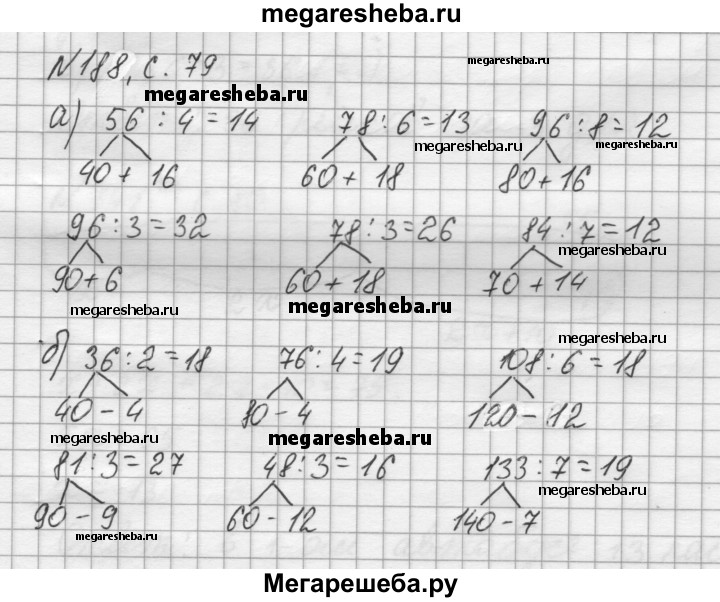 megaresheba.ru
N188, с. 79
megaresheba.ru
megaresheba.ru
а) 56 : 4 = 14 78 : 6 = 13 96 : 8 = 12
megaresheba.ru megaresheba.ru
40 + 16 60 + 18 80 + 16
96 : 3 = 32 78 : 3 = 26 84 : 7 = 12
megaresheba.ru
90 + 6 60 + 18 70 + 14
megaresheba.ru megaresheba.ru
megaresheba.ru
б) 36 : 2 = 18 76 : 4 = 19 108 : 6 = 18
40 - 4 80 - 4 120 - 12
megaresheba.ru megaresheba.ru
81 : 3 = 27 48 : 3 = 16 133 : 7 = 19
megaresheba.ru
90 - 9 60 - 12 140 - 7
megaresheba.ru
Мегарешеба.ру